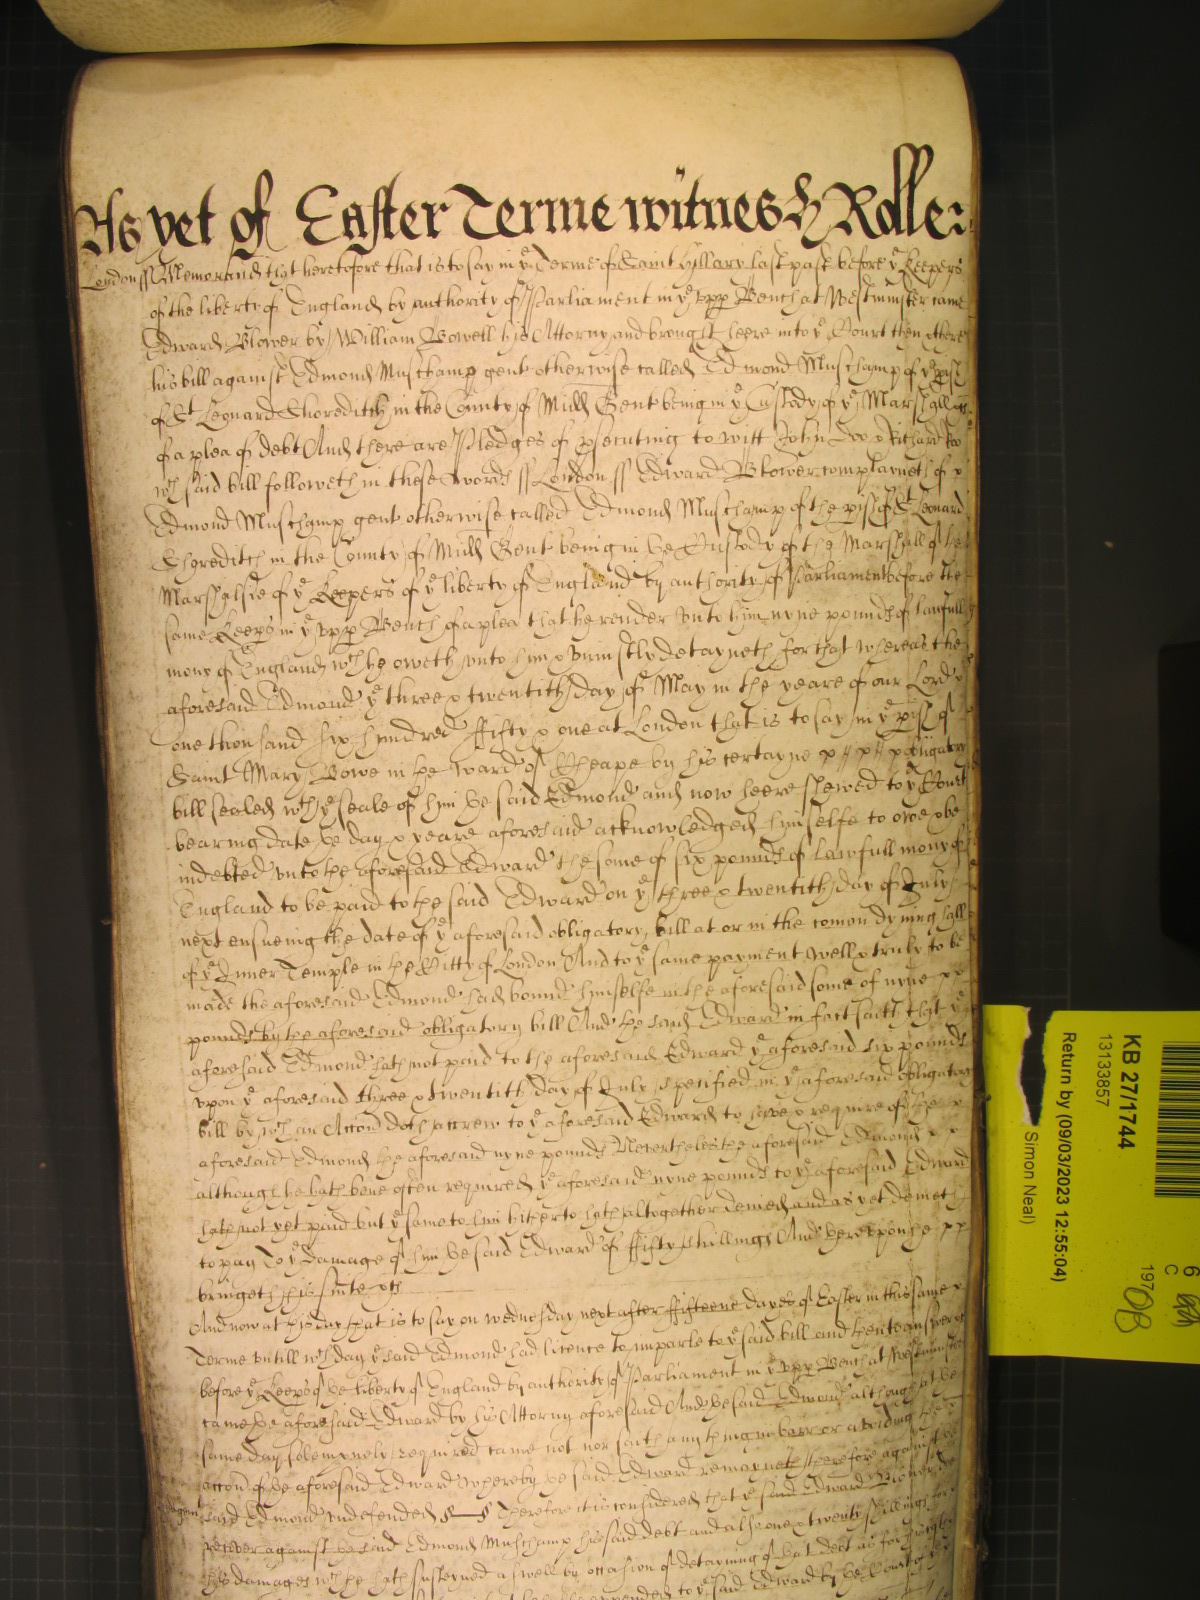 As yet of Easter Terme witnes H Rolle
London ss Memorand that heretofore that is to say in ye Terme of Saint Hillary last past before ye Keepers
of the liberty of England by authority of Parliament in ye upp Bench at Westminster came
Edward Blower by William Bowell his Attorny and brought heere into ye Court then & there
his bill against Edmond Muschamp gent otherwise called Edmond Muschamp of ye pish
of St Leonard Shoreditch in the County of Midd Gent being in ye Custody of ye Marshall &c
of a plea of debt And there are Pledges of psecuting to witt John Doo & Richard Roo
wch said bill followeth in these words ss London ss Edward Blower complayneth of x
Edmond Muschamp gent otherwise called Edmond Muschamp of the pish of St Leonard
Shoreditch in the County of Midd Gent being in ye Custody of the Marshall of the
Marshalsie of ye Keepers of ye liberty of England by authority of Parliament before the
same Keeps in ye upp Bench of a plea that he render unto him nyne pounds of lawfull
mony of England wch he oweth unto him & uniustly detayneth for that whereas the
aforesaid Edmond ye three & twentith day of May in the yeare of our Lord x
one thousand six hundred ffifty & one at London that is to say in ye pish of
Saint Mary Bowe in the ward of Cheape by his certayne x x x obligatory
bill sealed wth ye seale of him ye said Edmond and now heere shewed to ye Court
bearing date ye day & yeare aforesaid acknowledged himselfe to owe & be
indebted unto the aforesaid Edward the some of six pounds of lawfull mony of
England to be paid to the said Edward on ye three & twentith day of July
next ensueing the date of ye aforesaid obligatory bill at or in the comon dyning hall
of ye Inner Temple in the Citty of London And to ye same payment well & truly to be
made the aforesaid Edmond had bound himselfe in the aforesaid some of nyne x x
pounds by the aforesaid obligatory bill And the said Edward in fact saith that ye
aforesaid Edmond hath not paid to the aforesaid Edward ye aforesaid six pounds
upon ye aforesaid three & twentith day of July specified in ye aforesaid obligatory
bill by wch an Accon doth accrew to ye aforesaid Edward to have & require of the x
aforesaid Edmond the aforesaid nyne pounds Neverthelesse the aforesaid Edmond x x
although he hath bene often required ye aforesaid nyne pounds to ye aforesaid Edward
hath not yet paid but ye same to him hitherto hath altogether denied and as yet denieth
to pay To ye damage of him ye said Edward of ffifty shillings And thereupon he x x
bringeth his suite &c
And now at this day that is to say on wednesday next after ffifteene dayes of Easter in this same x
Terme untill wch day ye said Edmond had licence to imparle to ye said bill and then to answer &c
before ye Keeps of ye liberty of England by authority of Parliament in ye upp Bench at Westminster
came ye aforesaid Edward by his Attorny aforesaid And ye said Edmond although at ye
same day solempnely required came not nor saith any thing in barr or avoiding the
accon of ye aforesaid Edward whereby ye said Edward remayneth therefore against ye
said Edmond undefended Therefore it is considered that ye said Edward Blower do
recover against ye said Edmond Muschamp his said debt and also one & twenty shillings for
his damages wch he hath susteyned aswell by occasion of detayning of that debt as for
to ye said Edward by ye Court
KB 27/1744
13133857
Return by (09/03/2023 12:55:04)
Simon Neal)
6
C
197